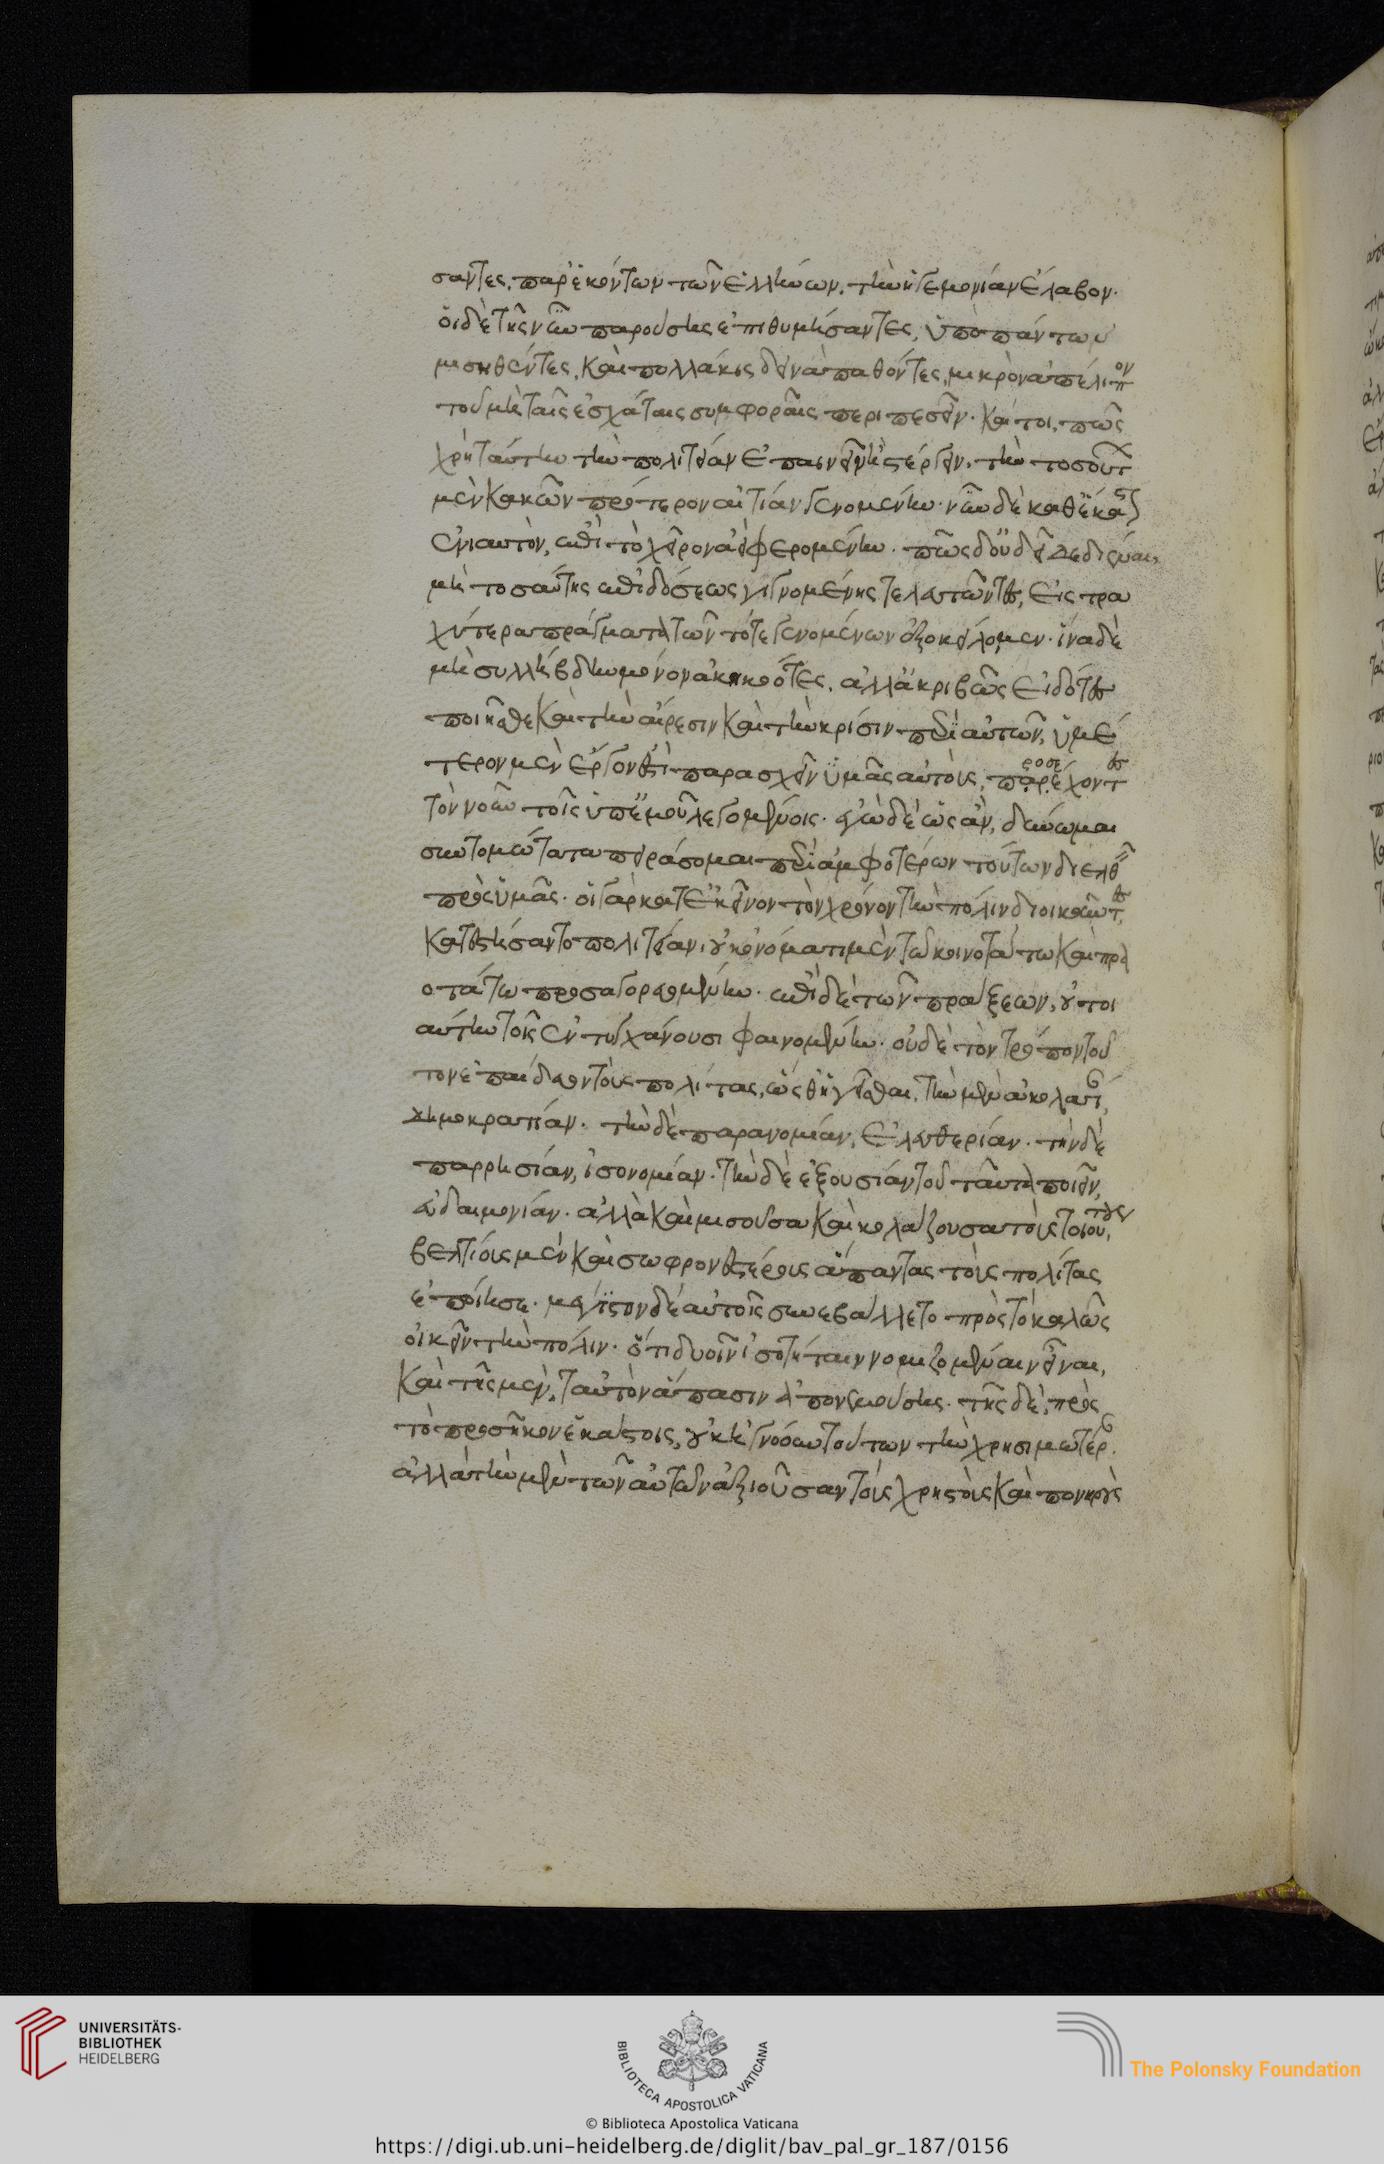 σαντες, παρ' ἑκόντων τῶν ἑλλήνων, τὴν ἡγεμονίαν ἔλαβον·
οἱ δὲ τῆς νῦν παρούσης ἐπιθυμήσαντες, ὑπὸ πάντων
μισηθέντες, καὶ πολλάκις δεινὰ παθόντες, μικρὸν ἀπέλιπον
τοῦ μὴ ταῖς ἐσχάταις συμφοραῖς περιπεσεῖν. καί τοι, πῶς
χρὴ ταύτην τὴν πολιτείαν ἐπαινεῖν ἢ στέργειν, τὴν τοσούτων
μὲν κακῶν πρότερον αἰτίαν γενομένην· νῦν δὲ καθ' ἕκαστον
ἐνιαυτὸν, ἐπὶ τὸ χεῖρον ἀεὶ φερομένην. πῶς δ' οὐ δεῖ δεδιέναι,
μὴ τοσαύτης ἐπιδόσεως γιγνομένης τελευτῶντες, εἰς τρα
χύτερα πράγματα τῶν τότε γενομένων ἐξοκείλομεν. ἵνα δὲ
μὴ συλλήβδην μόνον ἀκηκοότες, ἀλλ' ἀκριβῶς εἰδότες
ποιῆσθε καὶ τὴν αἵρεσιν καὶ τὴν κρίσιν περὶ αὐτῶν, ὑμέ
τερον μὲν ἔργον ἐστὶ παρασχεῖν ὑμᾶς αὐτοὺς, προσέχοντες
τὸν νοῦν τοῖς ὑπ' ἐμοῦ λεγομένοις. ἐγὼ δὲ ὡς ἂν, δύνωμαι
συντομώτατα πειράσομαι περὶ ἀμφοτέρων τούτων διελθεῖν
πρὸς ὑμᾶς. οἱ γὰρ κατ' ἐκεῖνον τὸν χρόνον τὴν πόλιν διοικοῦντες,
κατεστήσαντο πολιτείαν, οὐκ ὀνόματι μὲν τῷ κοινοτάτῳ καὶ πρα
οτάτῳ προσαγορευομένην. ἐπὶ δὲ τῶν πράξεων, οὐ τοι
αύτην τοῖς ἐντυγχάνουσι φαινομένην. οὐδὲ τὸν τρόπον τοῦ
τον ἐπαίδευον τοὺς πολίτας, ὥσθ' ἡγεῖσθαι, τὴν μὲν ἀκολασίαν,
δημοκρατίαν. τὴν δὲ παρανομίαν, ἐλευθερίαν. τὴν δὲ
παρρησίαν, ἰσονομίαν. τὴν δὲ ἐξουσίαν τοῦ ταῦτα ποιεῖν,
εὐδαιμονίαν. ἀλλὰ καὶ μισοῦσα καὶ κολάζουσα τοὺς τοιούτους,
βελτίους μὲν καὶ σωφρονεστέρους ἅπαντας τοὺς πολίτας
ἐποίησε. μέγιστον δὲ αὐτοῖς συνεβάλλετο πρὸς τὸ καλῶς
οἰκεῖν τὴν πόλιν. ὅτι δυοῖν ἰσοτήταιν νομιζομέναιν εἶναι,
καὶ τῆς μὲν, ταὐτὸν ἅπασιν ἀπονεμούσης. τῆς δὲ, πρὸς
τὸ προσῆκον ἑκάστοις, οὐκ ἠγνόουν τούτων τὴν χρησιμωτέραν.
ἀλλὰ τὴν μὲν τῶν αὐτῶν ἀξιοῦσαν τοὺς χρηστοὺς καὶ πονηροὺς
UNIVERSITÄTS-
BIBLIOTHEK
HEIDELBERG
BIBLIOTECA APOSTOLICA VATICANA
The Polonsky Foundation
© Biblioteca Apostolica Vaticana
https://digi.ub.uni-heidelberg.de/diglit/bav_pal_gr_187/0156